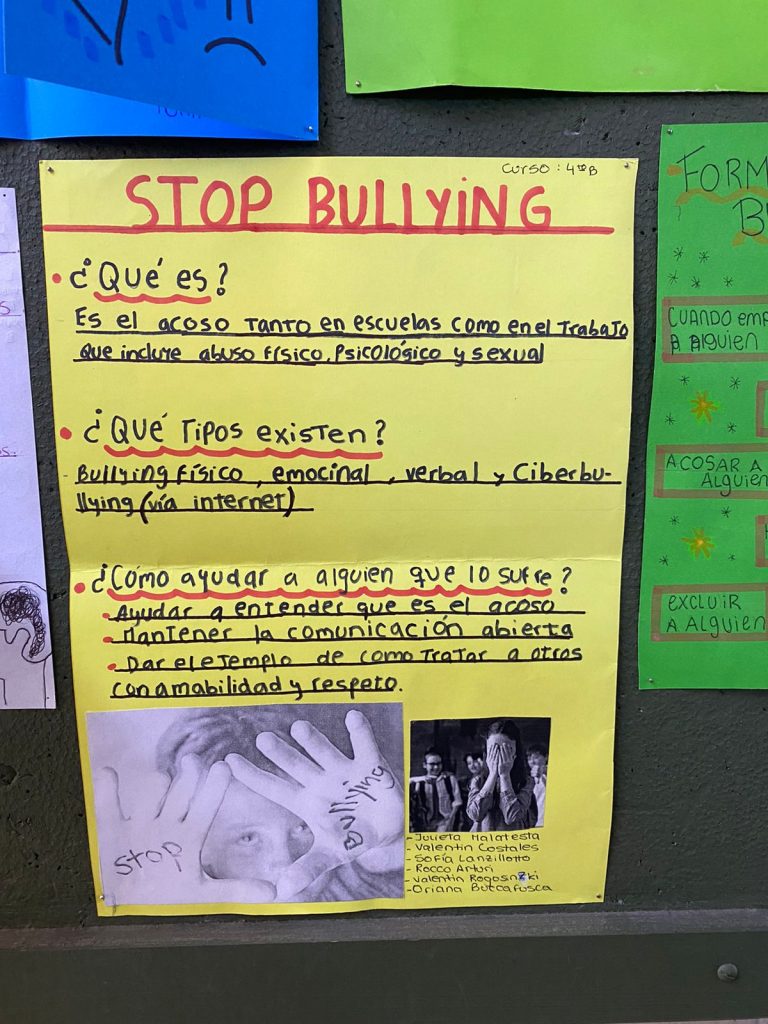 Curso: 4to B
STOP BULLYING
¿Qué es?
Es el acoso tanto en escuelas como en el trabajo
que incluye abuso físico, psicológico y sexual
¿Qué tipos existen?
Bullying físico, emocinal, verbal y Ciberbu-
llying (vía internet)
¿Cómo ayudar a alguien que lo sufre?
Ayudar a entender que es el acoso
Mantener la comunicación abierta
Dar el ejemplo de como tratar a otros
con amabilidad y respeto.
STOP
Bullying
- Julieta Malatesta
- Valentin Costales
- Sofía Lanzillotto
- Rocco Arturi
- Valentin Rogosinzki
- Oriana Butcafusca
FORM
B
CUANDO EMP
A Alguien
ACOSAR A
Alguien
EXCLUIR
A Alguien